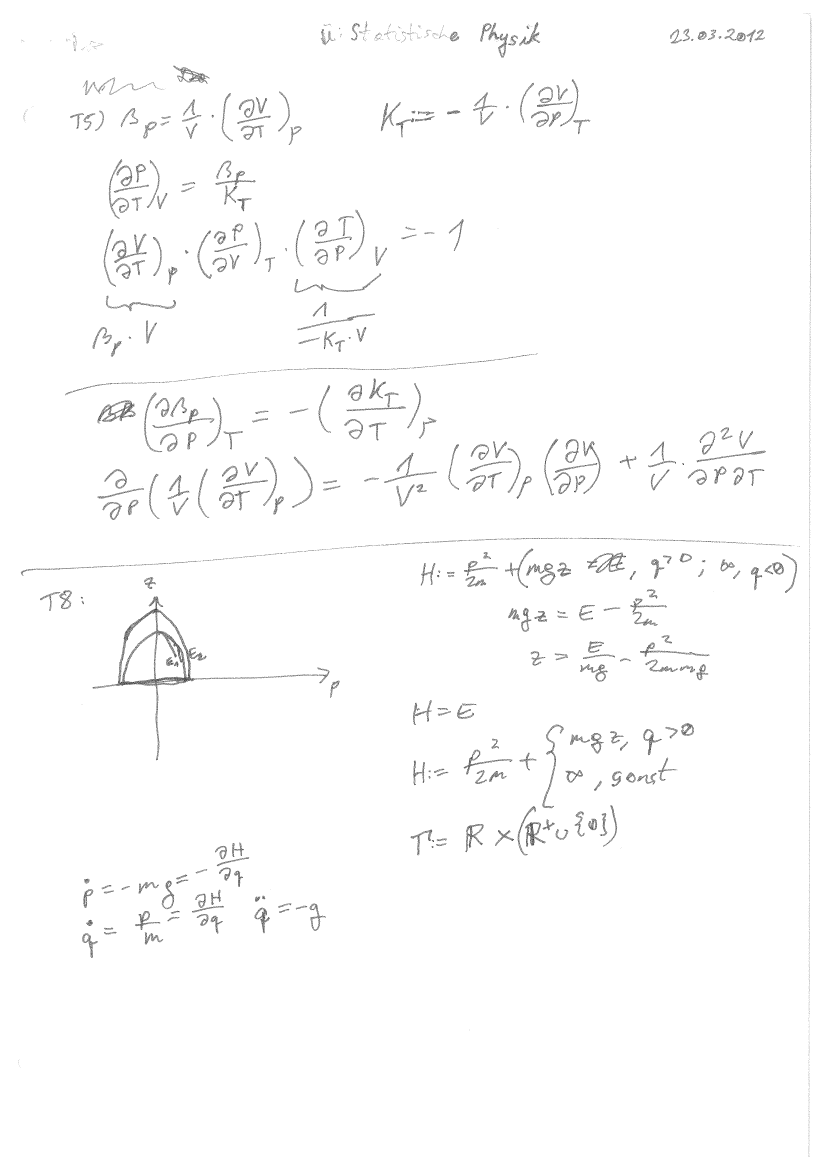 Ü: Statistische Physik 23.03.2012
T5) β_p = 1/V · (∂V/∂T)_p K_T := - 1/V · (∂V/∂P)_T
(∂P/∂T)_V = β_p/K_T
(∂V/∂T)_p · (∂P/∂V)_T · (∂T/∂P)_V = -1
β_p · V 1/(-K_T · V)
(∂β_p/∂P)_T = - (∂K_T/∂T)_P
∂/∂P (1/V (∂V/∂T)_p) = - 1/V² (∂V/∂T)_p (∂V/∂P) + 1/V · ∂²V/∂P∂T
T8:
z
E₁ E₂
p
H := p²/2m + (mgz, q>0; ∞, q<0)
mgz = E - p²/2m
z = E/mg - p²/2m mg
H = E
H := p²/2m + { mgz, q>0
∞, sonst
Γ := ℝ × (ℝ⁺ ∪ {0})
ṗ = -mg = - ∂H/∂q
q̇ = p/m = ∂H/∂q q̈ = -g